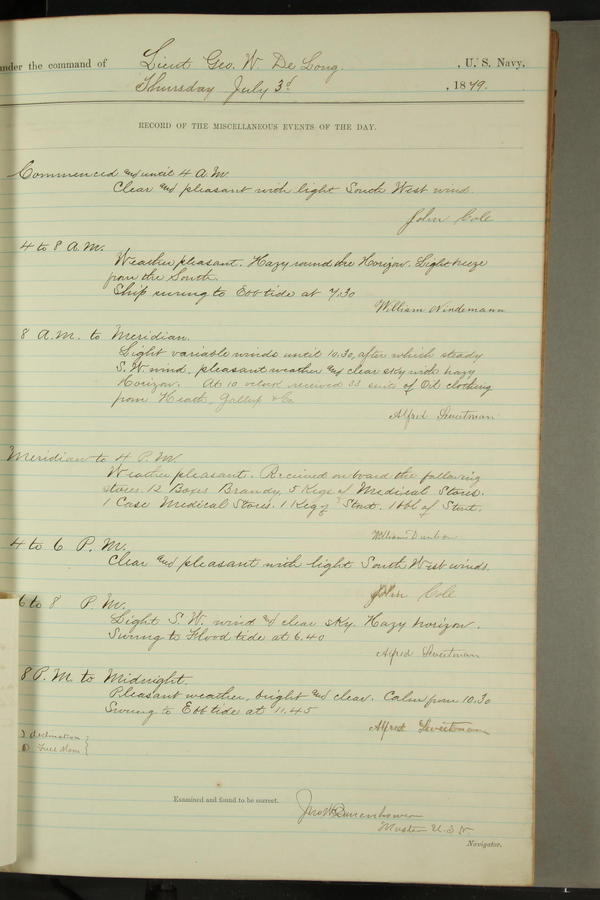 under the command of Lieut Geo. W. De Long. , U. S. Navy,
Thursday July 3d , 1879.
RECORD OF THE MISCELLANEOUS EVENTS OF THE DAY.
Commenced and until 4 A.M.
Clear and pleasant with light South West wind.
John Cole
4 to 8 A.M.
Weather pleasant. Hazy round the Horizon. Light breeze
from the South.
Ship swung to Ebb tide at 7.30
William Nindemann
8 A.M. to Meridian.
Light variable winds until 10.30, after which steady
S.W. wind. pleasant weather and clear sky with hazy
Horizon. At 10 o'clock received 33 suits of Oil clothing
from Heath, Gallup & Co
Alfred Sweetman
Meridian to 4 P.M.
Weather pleasant. Received on board the following
stores. 12 Boxes Brandy, 5 Kegs of Medical Stores.
1 Case Medical Stores. 1 Keg of Stout. 1 bbl of Stout.
William Dunbar
4 to 6 P.M.
Clear and pleasant with light South West winds.
John Cole
6 to 8 P.M.
Light S.W. wind and clear sky. Hazy horizon.
Swung to Flood tide at 6.40
Alfred Sweetman
8 P.M. to Midnight.
Pleasant weather, bright and clear. Calm from 10.30
Swung to Ebb tide at 11.45
Alfred Sweetman
declination
Full Moon
Examined and found to be correct.
Jno W Danenhower
Master U.S.N
Navigator.